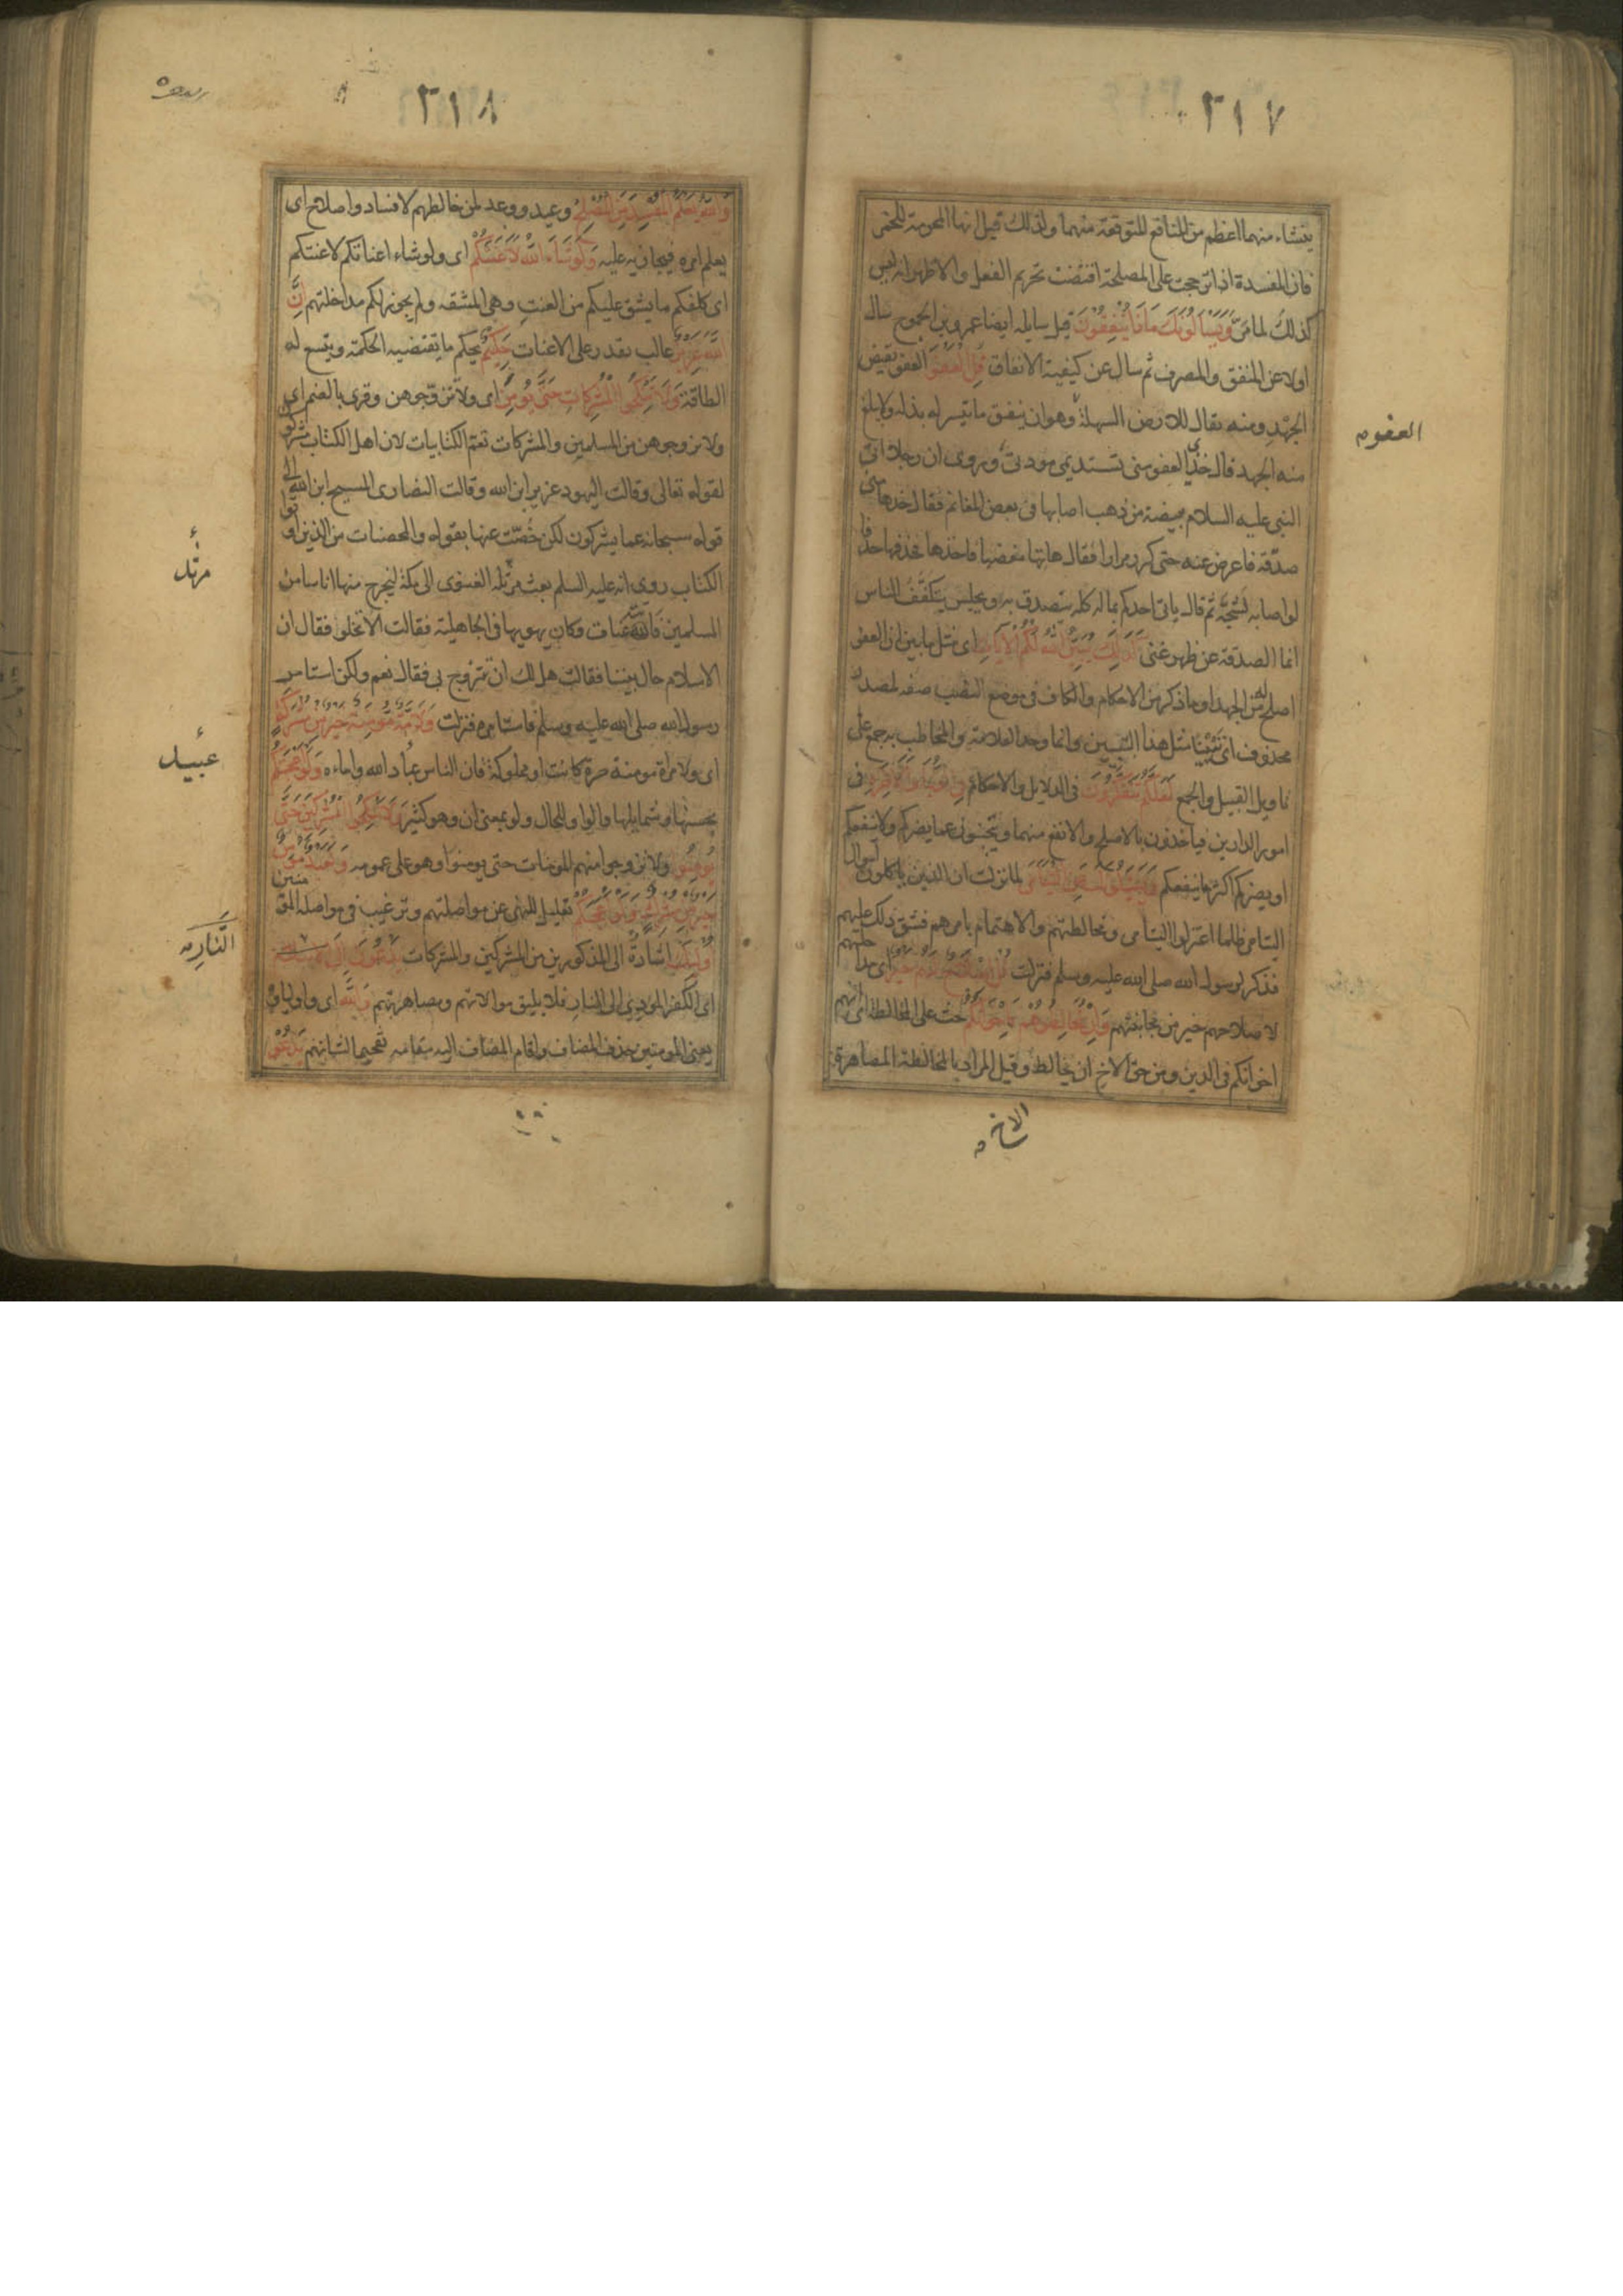 ٣١٧
ينشاء منهما اعظم من المنافع المتوقعة منهما ولذلك قيل انها المحرمة للخمر
فان المفسدة اذا ترجحت على المصلحة اقتضت تحريم الفعل والاظهر انه ليس
كذلك لما مر وَيَسْأَلُونَكَ مَاذَا يُنْفِقُونَ قيل سايله ايضا عمرو بن الجموح سال
اولا عن المنفق والمصرف ثم سال عن كيفية الانفاق قُلِ الْعَفْوَ العفو نقيض
الجهد ومنه يقال للارض السهلة وهو ان ينفق ما تيسر له بذله ولا يبلغ
منه الجهد قال خذي العفو منى تستديمى مودتى وروى ان رجلا اتى
النبى عليه السلام ببيضة من ذهب اصابها فى بعض المغانم فقال خذها منى
صدقة فاعرض عنه حتى كرر مرارا فقال هاتها مغضبا فاخذها فخذفها خذفا
لو اصابه لشجه ثم قال ياتى احدكم بماله كله يتصدق به ويجلس يتكفف الناس
انما الصدقة عن ظهر غنى كَذَلِكَ يُبَيِّنُ اللَّهُ لَكُمُ الْآيَاتِ اى مثل ما بين ان العفو
اصلح من الجهد او ما ذكر من الاحكام والكاف فى موضع النصب صفة لمصدر
محذوف اى تبيينا مثل هذا التبيين وانما وحد العلامة والمخاطب به جمع على
تاويل القبيل والجمع لَعَلَّكُمْ تَتَفَكَّرُونَ فى الدلايل والاحكام فِي الدُّنْيَا وَالْآخِرَةِ فى
امور الدارين فياخذون بالاصلح والانفع منهما ويتجنبون عما يضركم ولا ينفعكم
او يضركم اكثر مما ينفعكم وَيَسْأَلُونَكَ عَنِ الْيَتَامَى لما نزلت ان الذين ياكلون اموال
اليتامى ظلما اعتزلوا اليتامى ومخالطتهم والاهتمام بامرهم فشق ذلك عليهم
فذكر لرسول الله صلى الله عليه وسلم فنزلت قُلْ إِصْلَاحٌ لَهُمْ خَيْرٌ اى مداخلتهم
لاصلاحهم خير من مجانبتهم وَإِنْ تُخَالِطُوهُمْ فَإِخْوَانُكُمْ حث على المخالطة اى انهم
اخوانكم فى الدين ومن حق الاخ ان يخالط وقيل المراد بالمخالطة المصاهرة
العفو
الاخ
٣١٨
وَاللَّهُ يَعْلَمُ الْمُفْسِدَ مِنَ الْمُصْلِحِ وعيد ووعد لمن خالطهم لافساد واصلاح اى
يعلم امره فيجازيه عليه وَلَوْ شَاءَ اللَّهُ لَأَعْنَتَكُمْ اى ولو شاء اعناتكم لاعنتكم
اى كلفكم ما يشق عليكم من العنت وهى المشقه ولم يجوز لكم مداخلتهم إِنَّ
اللَّهَ عَزِيزٌ غالب يقدر على الاعنات حَكِيمٌ يحكم ما تقتضيه الحكمة ويتسع له
الطاقة وَلَا تَنْكِحُوا الْمُشْرِكَاتِ حَتَّى يُؤْمِنَّ اى ولا تتزوجوهن وقرى بالضم اى
ولا تزوجوهن من المسلمين والمشركات تعم الكتابيات لان اهل الكتاب مشركون
لقوله تعالى وقالت اليهود عزير ابن الله وقالت النصارى المسيح ابن الله الى
قوله سبحانه عما يشركون لكن خُصّت عنها بقوله والمحصنات من الذين اوتوا
الكتاب روى انه عليه السلم بعث مرثد الغنوى الى مكة ليخرج منها اناسا من
المسلمين فاتته عناق وكان يهويها فى الجاهلية فقالت الا تخلو فقال ان
الاسلام حال بيننا فقالت هل لك ان تتزوج بى فقال نعم ولكن استامر
رسول الله صلى الله عليه وسلم فاستامره فنزلت وَلَأَمَةٌ مُؤْمِنَةٌ خَيْرٌ مِنْ مُشْرِكَةٍ
اى ولامراة مومنة حرة كانت او مملوكة فان الناس عباد الله واماءه وَلَوْ أَعْجَبَتْكُمْ
بحسنها وشمايلها والواو للحال ولو بمعنى ان وهو كثير وَلَا تُنْكِحُوا الْمُشْرِكِينَ حَتَّى
يُؤْمِنُوا ولا تزوجوا منهم المومنات حتى يومنوا وهو على عمومه وَلَعَبْدٌ مُؤْمِنٌ
خَيْرٌ مِنْ مُشْرِكٍ وَلَوْ أَعْجَبَكُمْ تعليل للنهى عن مواصلتهم وترغيب فى مواصلة المومنين
أُولَئِكَ اشارة الى المذكورين من المشركين والمشركات يَدْعُونَ إِلَى
اى الكفر المودى الى النار فلا يليق موالاتهم ومصاهرتهم وَاللَّهُ اى واولياؤه
يعنى المومنين حذف المضاف واقام المضاف اليه مقامه تفخيما لشانهم يَدْعُو
مرثد
عبيد
النَّارِ